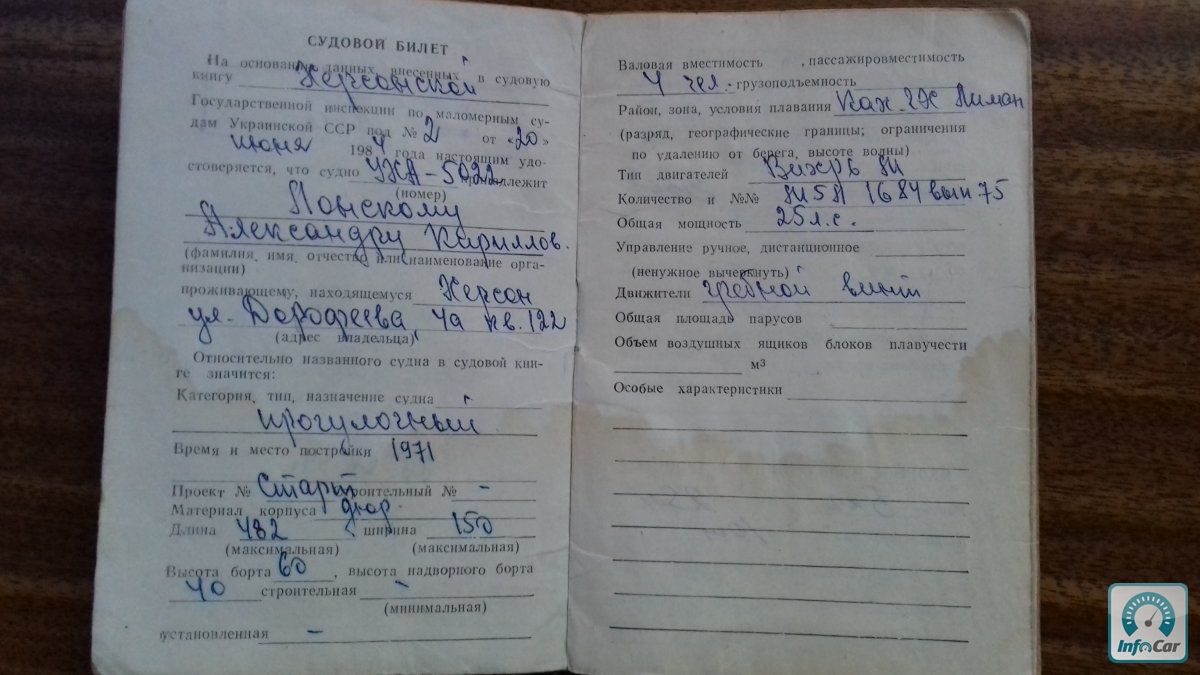 СУДОВОЙ БИЛЕТ
На основании данных внесенных в судовую
книгу Херсонской
Государственной инспекции по маломерным су-
дам Украинской ССР под № 2 от «20»
июня 1984 года настоящим удо-
стоверяется, что судно УХА-5022 принадлежит
(номер)
Понскому
Александру Кириллов.
(фамилия, имя, отчество или наименование орга-
низации)
проживающему, находящемуся Херсон
ул. Дорофеева, 4а кв. 122
(адрес владельца)
Относительно названного судна в судовой кни-
ге значится:
Категория, тип, назначение судна
прогулочный
Время и место постройки 1971
Проект № Старт строительный № -
Материал корпуса дюр.
Длина 482 ширина 150
(максимальная) (максимальная)
Высота борта 60, высота надворного борта
40 строительная -
(минимальная)
установленная -
Валовая вместимость , пассажировместимость
4 чел. грузоподъемность
Район, зона, условия плавания Ках. ГХ Лиман
(разряд, географические границы; ограничения
по удалению от берега, высоте волны)
Тип двигателей Вихрь
Количество и №№ 1684 вып. 75
Общая мощность 25 л.с.
Управление ручное, дистанционное
(ненужное вычеркнуть)
Движители гребной винт
Общая площадь парусов
Объем воздушных ящиков блоков плавучести
м3
Особые характеристики
InfoCar